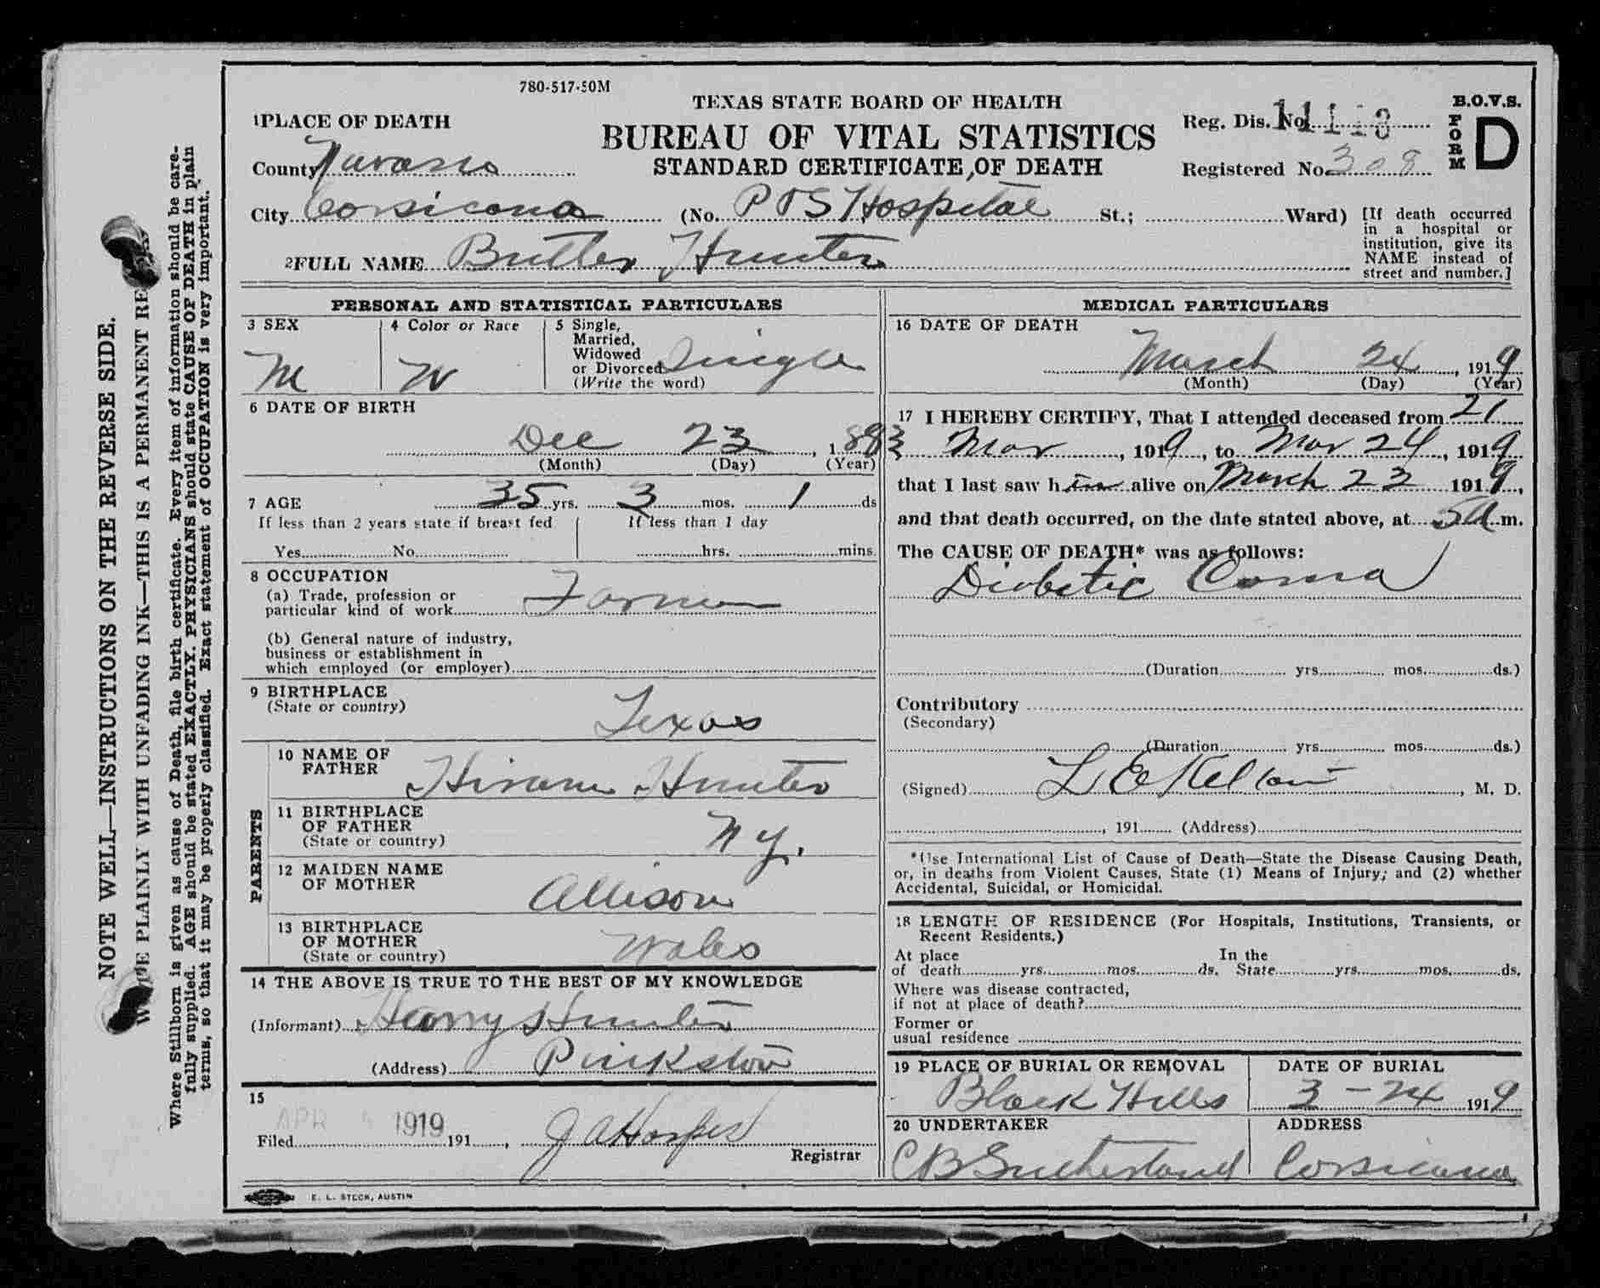 780-517-50M
TEXAS STATE BOARD OF HEALTH
BUREAU OF VITAL STATISTICS
STANDARD CERTIFICATE OF DEATH
B.O.V.S.
FORM D
Reg. Dis. No.
Registered No. 308
1 PLACE OF DEATH
County Navarro
City Corsicana (No. P & S Hospital St.; Ward)
[If death occurred
in a hospital or
institution, give its
NAME instead of
street and number.]
2 FULL NAME Butler Hunter
PERSONAL AND STATISTICAL PARTICULARS
3 SEX
M
4 Color or Race
W
5 Single,
Married,
Widowed
or Divorced Single
(Write the word)
6 DATE OF BIRTH
Dec 23, 1883
(Month) (Day) (Year)
7 AGE 35 yrs. 3 mos. 1 ds
If less than 2 years state if breast fed
Yes No
If less than 1 day
hrs. mins.
8 OCCUPATION
(a) Trade, profession or
particular kind of work Farmer
(b) General nature of industry,
business or establishment in
which employed (or employer)
9 BIRTHPLACE
(State or country)
Texas
PARENTS
10 NAME OF
FATHER Hiram Hunter
11 BIRTHPLACE
OF FATHER
(State or country)
N Y.
12 MAIDEN NAME
OF MOTHER
Allison
13 BIRTHPLACE
OF MOTHER
(State or country)
Wales
14 THE ABOVE IS TRUE TO THE BEST OF MY KNOWLEDGE
(Informant) Harry Hunter
(Address) Pinkston
15
APR 1919
Filed 191 , J A Harper
Registrar
E. L. STECK, AUSTIN
MEDICAL PARTICULARS
16 DATE OF DEATH
March 24, 1919
(Month) (Day) (Year)
17 I HEREBY CERTIFY, That I attended deceased from 21
Mar, 1919, to Mar 24, 1919
that I last saw him alive on March 23 1919,
and that death occurred, on the date stated above, at 5a m.
The CAUSE OF DEATH* was as follows:
Diobetic Coma
(Duration yrs. mos. ds.)
Contributory
(Secondary)
(Duration yrs. mos. ds.)
(Signed) L E Kellow, M. D.
, 191 (Address)
*Use International List of Cause of Death—State the Disease Causing Death,
or, in deaths from Violent Causes, State (1) Means of Injury; and (2) whether
Accidental, Suicidal, or Homicidal.
18 LENGTH OF RESIDENCE (For Hospitals, Institutions, Transients, or
Recent Residents.)
At place In the
of death yrs. mos. ds. State yrs. mos. ds.
Where was disease contracted,
if not at place of death?
Former or
usual residence
19 PLACE OF BURIAL OR REMOVAL
Black Hills
DATE OF BURIAL
3-24 1919
20 UNDERTAKER
C B Sutherland
ADDRESS
Corsicana
NOTE WELL—INSTRUCTIONS ON THE REVERSE SIDE.
PLAINLY WITH UNFADING INK—THIS IS A PERMANENT
Where Stillborn is given as cause of Death, file birth certificate. Every item of information should be care-
fully supplied. AGE should be stated EXACTLY. PHYSICIANS should state CAUSE OF DEATH in plain
terms, so that it may be properly classified. Exact statement of OCCUPATION is very important.